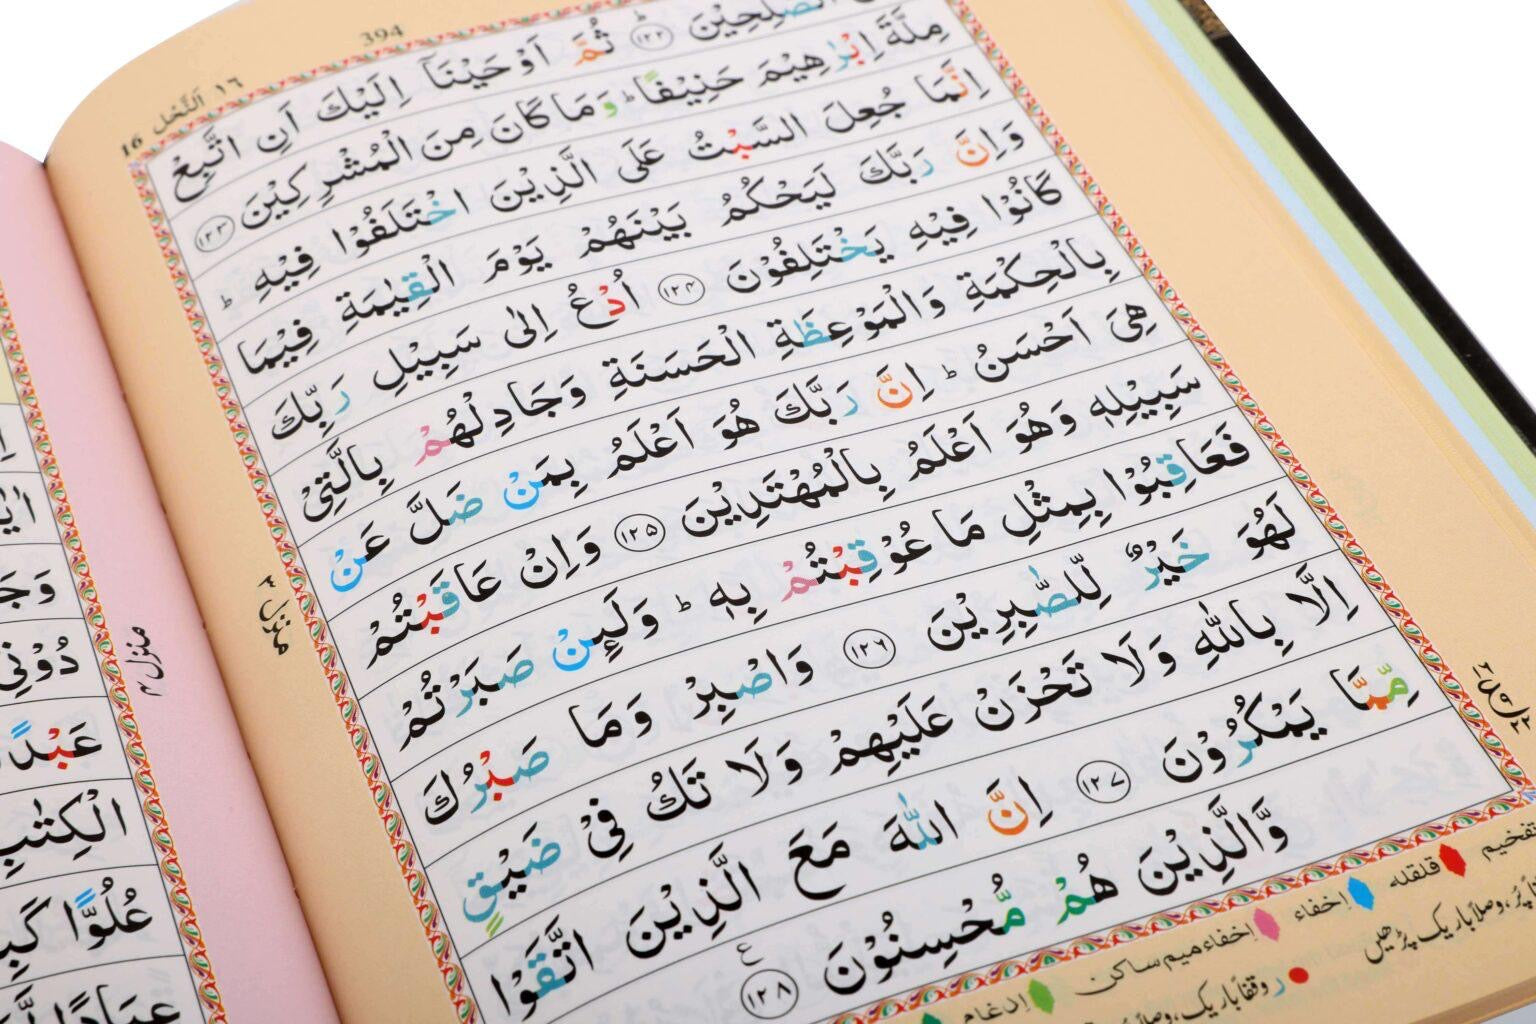 394
١٦ اَلنَّحْل 16
الصّٰلِحِيْنَ ؕ ﴿۱۲۲﴾ ثُمَّ اَوْحَيْنَاۤ اِلَيْكَ اَنِ اتَّبِعْ
مِلَّةَ اِبْرٰهِيْمَ حَنِيْفًا ؕ وَمَا كَانَ مِنَ الْمُشْرِكِيْنَ ﴿۱۲۳﴾
اِنَّمَا جُعِلَ السَّبْتُ عَلَى الَّذِيْنَ اخْتَلَفُوْا فِيْهِ ؕ
وَاِنَّ رَبَّكَ لَيَحْكُمُ بَيْنَهُمْ يَوْمَ الْقِيٰمَةِ فِيْمَا
كَانُوْا فِيْهِ يَخْتَلِفُوْنَ ﴿۱۲۴﴾ اُدْعُ اِلٰى سَبِيْلِ رَبِّكَ
بِالْحِكْمَةِ وَالْمَوْعِظَةِ الْحَسَنَةِ وَجَادِلْهُمْ بِالَّتِىْ
هِىَ اَحْسَنُ ؕ اِنَّ رَبَّكَ هُوَ اَعْلَمُ بِمَنْ ضَلَّ عَنْ
سَبِيْلِهٖ وَهُوَ اَعْلَمُ بِالْمُهْتَدِيْنَ ﴿۱۲۵﴾ وَاِنْ عَاقَبْتُمْ
فَعَاقِبُوْا بِمِثْلِ مَا عُوْقِبْتُمْ بِهٖ ؕ وَلَىِٕنْ صَبَرْتُمْ
لَهُوَ خَيْرٌ لِّلصّٰبِرِيْنَ ﴿۱۲۶﴾ وَاصْبِرْ وَمَا صَبْرُكَ
اِلَّا بِاللّٰهِ وَلَا تَحْزَنْ عَلَيْهِمْ وَلَا تَكُ فِىْ ضَيْقٍ
مِّمَّا يَمْكُرُوْنَ ﴿۱۲۷﴾ اِنَّ اللّٰهَ مَعَ الَّذِيْنَ اتَّقَوْا
وَّالَّذِيْنَ هُمْ مُّحْسِنُوْنَ ﴿۱۲۸﴾ ع
منزل ۳
تفخیم قلقله اِخفاء اِخفاء میم ساکن اِدغام
ر وقفاً باریک، وصلاً
پُر، وصلاً باریک پڑھیں
منزل ۳
دُوْنِىْ
عَبْدًا
الْكِتٰبِ
عُلُوًّا